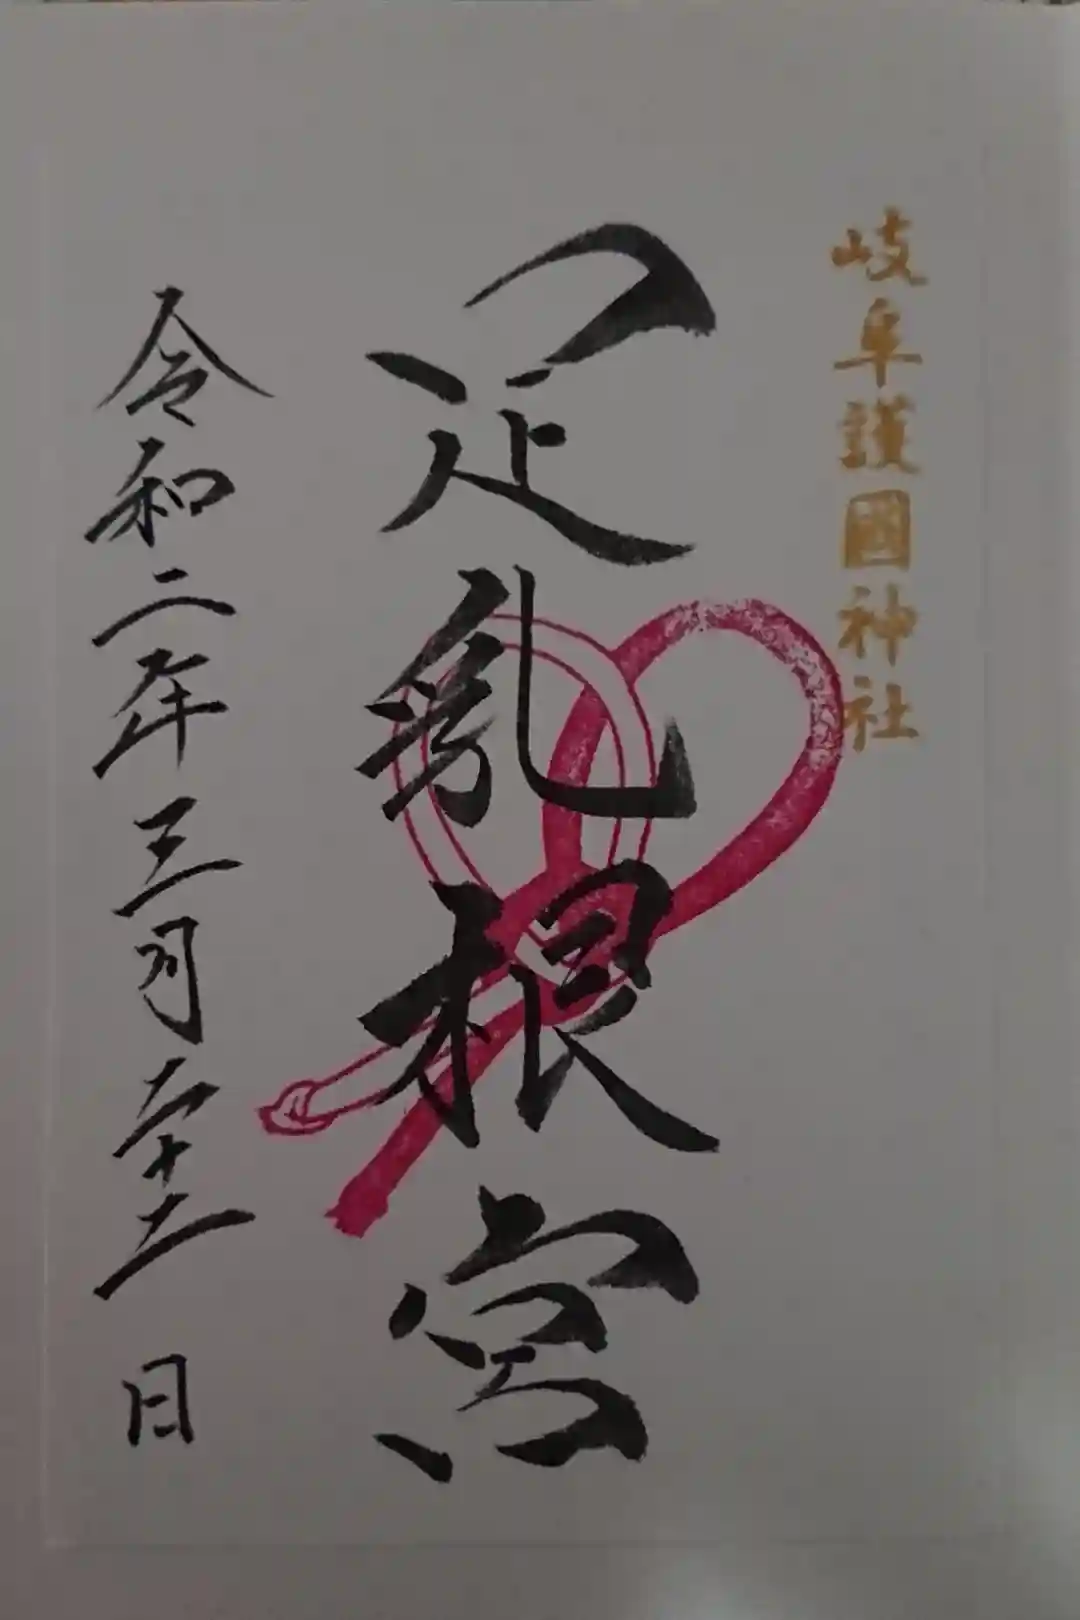 岐阜護國神社
足乳根宮
令和二年三月二十二日